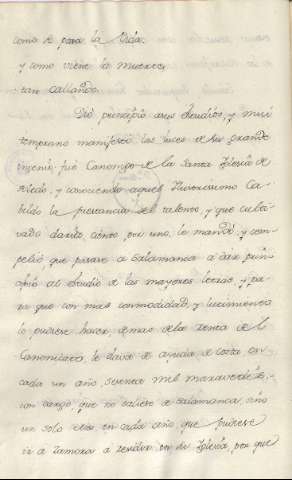 como se pasa la vida
y como viene la muerte,
tan callando.
Dió principio a sus estudios, y mui
temprano manifestó las luces de su grande
ingenio, fué Canonigo de la Santa Iglesia de
y conociendo aquel Ca-
bildo la prestancia del talento, y que culti-
vado daria ciento por uno, le mandó, y com-
pelió que pasase a Salamanca a dar prin-
cipio al estudio de las mayores letras, y pa-
ra que con mas commodidad, y lucimiento
lo pudiese hacer, demas de la renta de el
Canonicato, le daba de ayuda de costa en
cada un año, sesenta mil maravedises,
con cargo que no saliese de Salamanca, sino
un solo mes en cada año que pudiese
ir a Zamora a residir en su Iglesia, por que